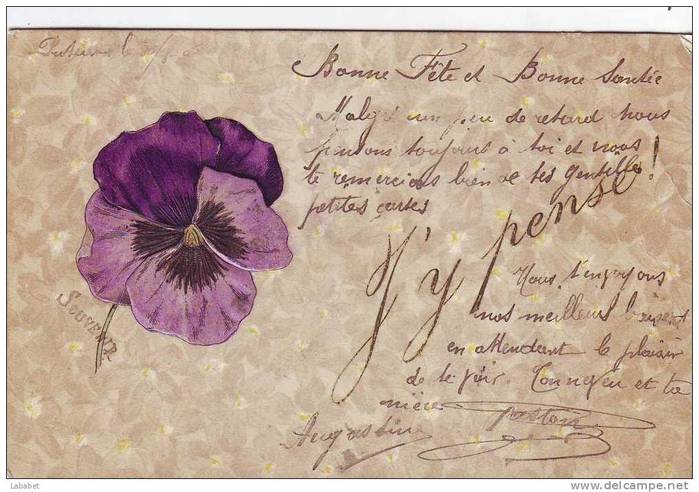 Puteaux le
Bonne Fête et Bonne Santée
Malgré un peu de retard nous
pensons toujours à toi et nous
te remercions bien de tes gentilles
petites cartes
J'y pense!
SOUVENIR
Nous t'envoyons
nos meilleurs baisers
en attendant le plaisir
de te voir. Ton neveu et ta
nièce
Augustine
Lababet
delcampe.net